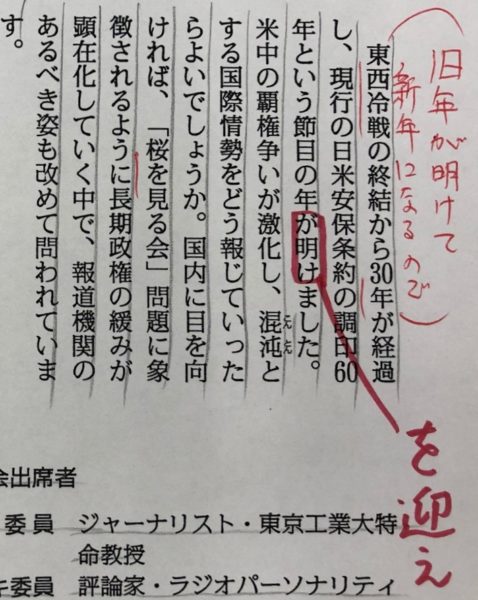 (旧年が明けて
新年になるので)
東西冷戦の終結から30年が経過
し、現行の日米安保条約の調印60
年という節目の年が明けました。
を迎え
米中の覇権争いが激化し、混沌と
する国際情勢をどう報じていった
らよいでしょうか。国内に目を向
ければ、「桜を見る会」問題に象
徴されるように長期政権の緩みが
顕在化していく中で、報道機関の
あるべき姿も改めて問われていま
す。
会出席者
委員 ジャーナリスト・東京工業大特
命教授
委員 評論家・ラジオパーソナリティ